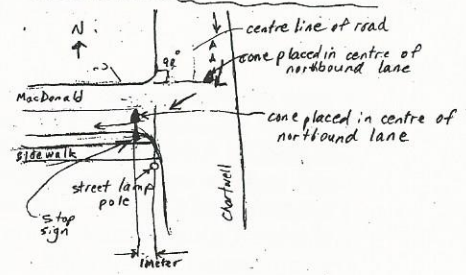 N
centre line of road
90°
cone placed in centre of
northbound lane
MacDonald
cone placed in centre of
northbound lane
Sidewalk
street lamp
pole
Stop
sign
Chartwell
1 meter